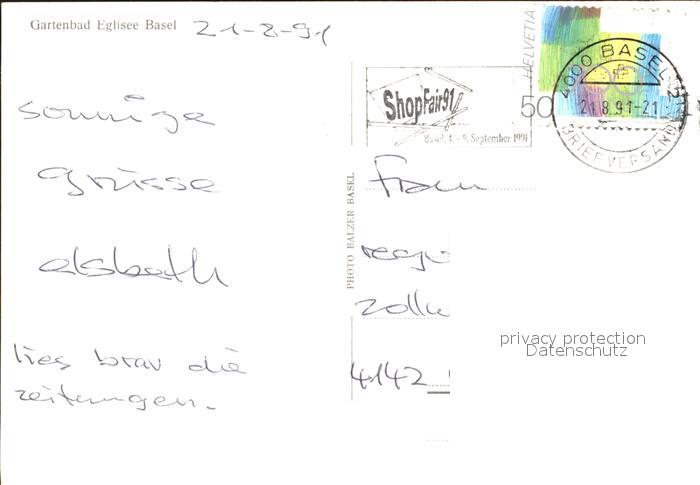 Gartenbad Eglisee Basel 21-8-91
sonnige
Grüsse
elsbeth
lies brav die
zeitungen.
PHOTO BALZER BASEL
ShopFair91
Basel, 4. - 9. September 1991
HELVETIA
50
4000 BASEL 2
21.8.91-21
BRIEFVERSAND
Frau
zollw
4142
privacy protection
Datenschutz